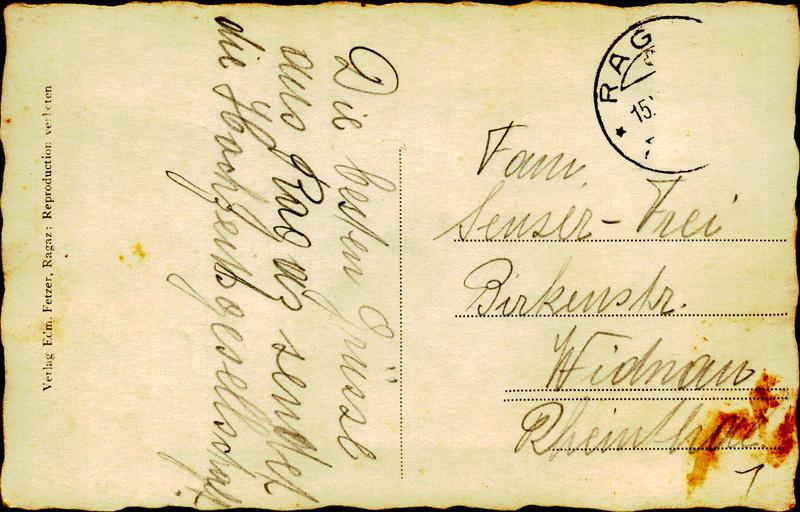 Die besten Grüsse
aus Ragaz sendet
die Hochzeitsgesellschaft
Fam.
Senser-Frei
Birkenstr.
Widnau
Rheinthal
RAG
15.
Verlag Edm. Fetzer, Ragaz: Reproduction verboten
1